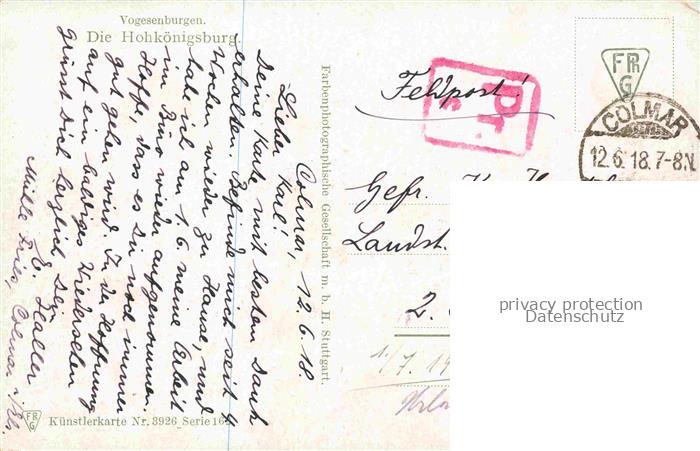 Vogesenburgen.
Die Hohkönigsburg.
Colmar, 12.6.18.
Lieber Karl!
Deine Karte mit besten Dank
erhalten. Befinde mich seit 4
Wochen wieder zu Hause, und
habe ich am 1.6 meine Arbeit
im Büro wieder aufgenommen.
Hoffe, dass es Du noch immer
gut gehen wird. In der Hoffnung
auf ein baldiges Wiedersehen
grüsst Dich herzlich Dein
E. Haller
Colmar i/Els.
Künstlerkarte Nr. 3926 Serie 16
FPh
G
Farbenphotographische Gesellschaft m. b. H. Stuttgart.
Feldpost!
FPh
G
COLMAR
12.6.18.7-8N.
Gefr.
Landst.
2.
1/7.19
privacy protection
Datenschutz